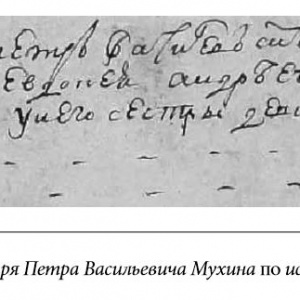 петръ василевъ си
евдокея андрѣе
у него сестры дев
ря Петра Васильевича Мухина по ис